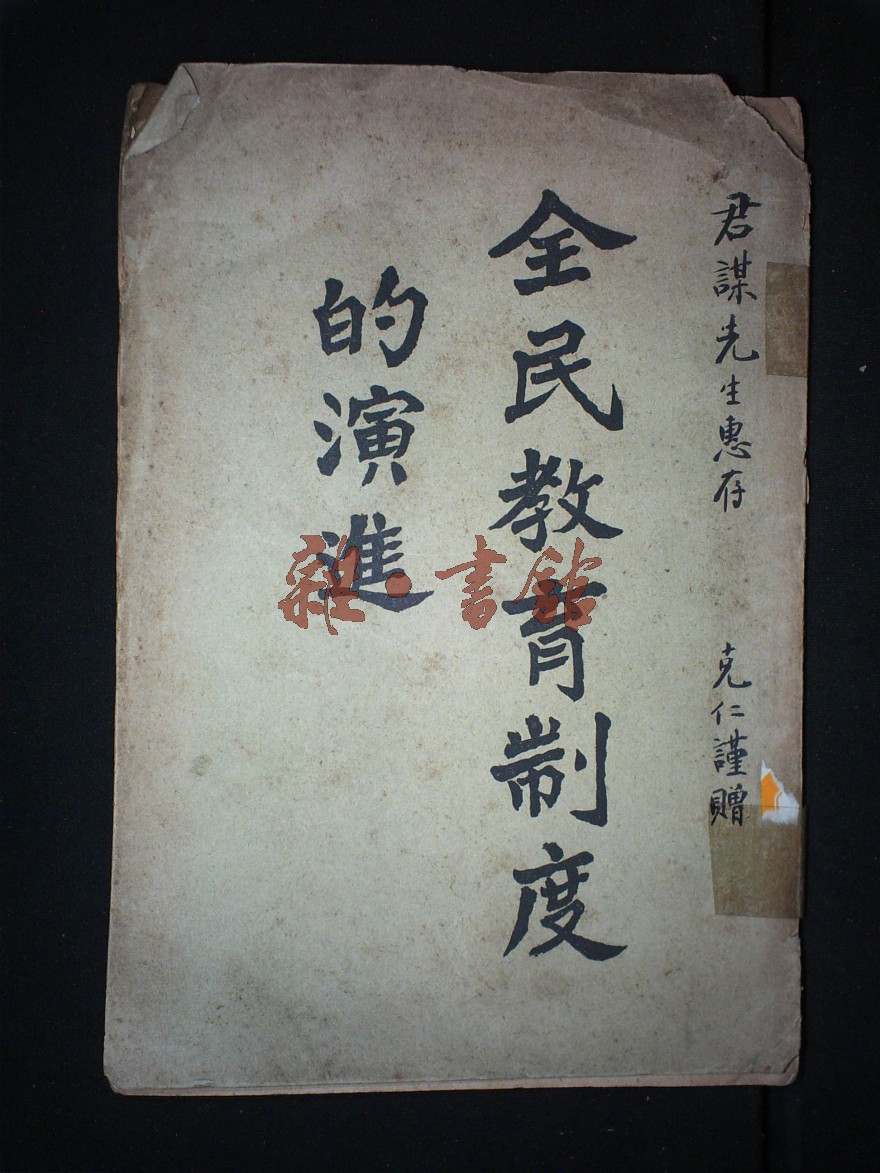 君謀先生惠存
克仁謹贈
全民教育制度
的演進
雜·書館